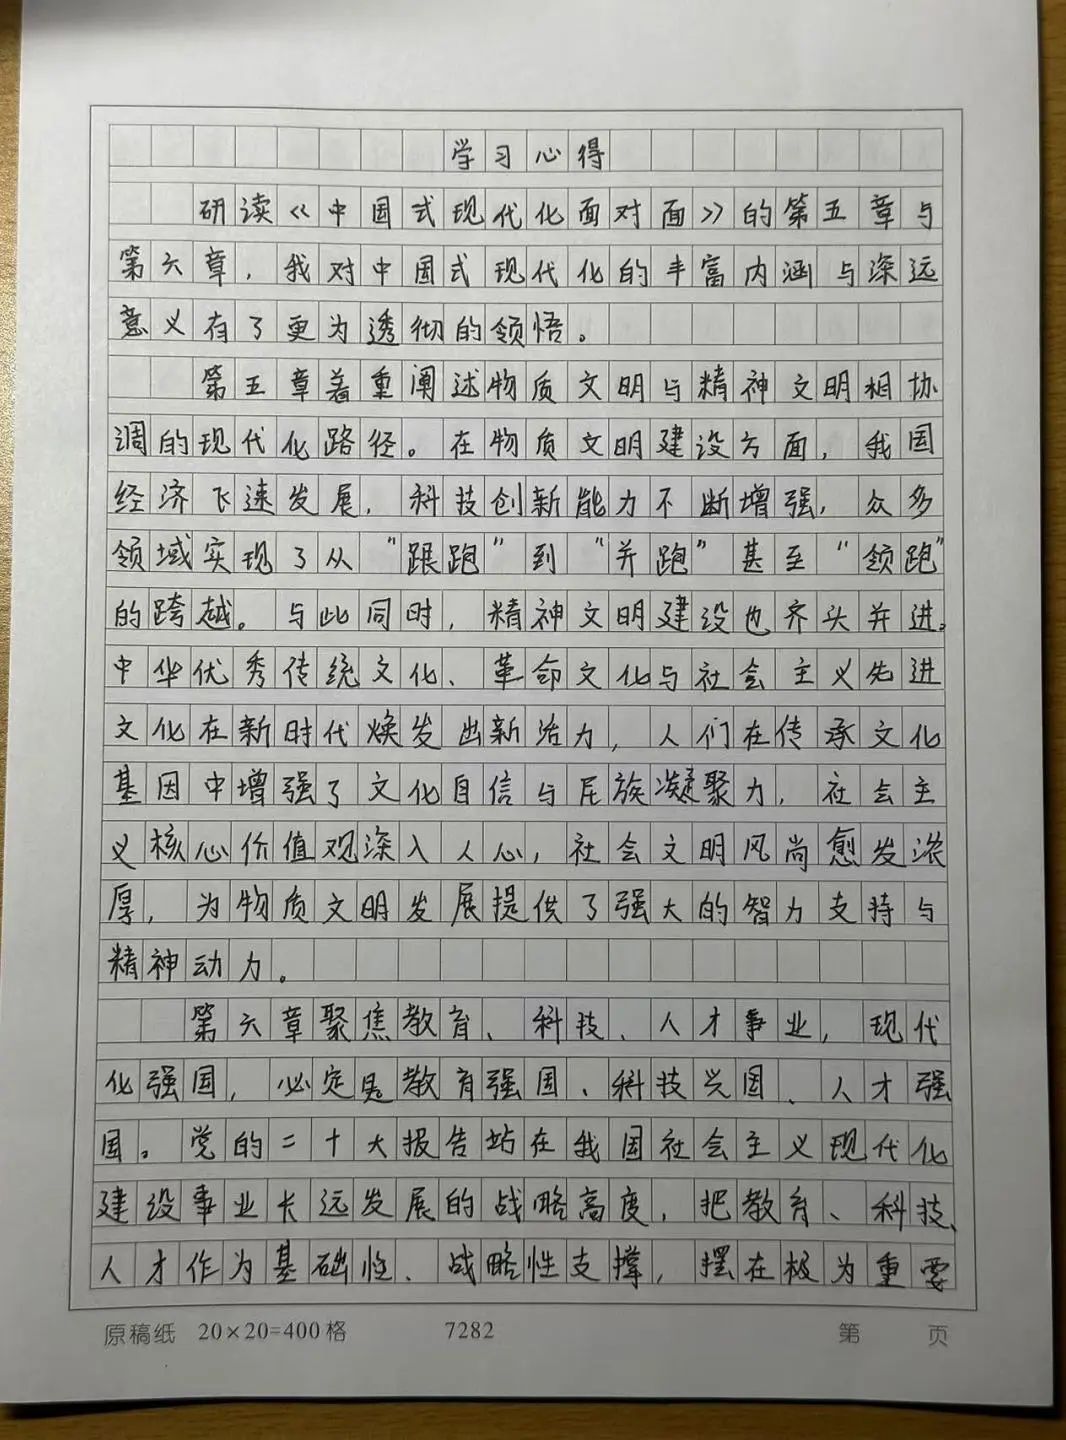 学习心得
研读《中国式现代化面对面》的第五章与
第六章，我对中国式现代化的丰富内涵与深远
意义有了更为透彻的领悟。
第五章着重阐述物质文明与精神文明相协
调的现代化路径。在物质文明建设方面，我国
经济飞速发展，科技创新能力不断增强，众多
领域实现了从“跟跑”到“并跑”甚至“领跑”
的跨越。与此同时，精神文明建设也齐头并进。
中华优秀传统文化、革命文化与社会主义先进
文化在新时代焕发出新活力，人们在传承文化
基因中增强了文化自信与民族凝聚力，社会主
义核心价值观深入人心，社会文明风尚愈发浓
厚，为物质文明发展提供了强大的智力支持与
精神动力。
第六章聚焦教育、科技、人才事业，现代
化强国，必定是教育强国、科技兴国、人才强
国。党的二十大报告站在我国社会主义现代化
建设事业长远发展的战略高度，把教育、科技、
人才作为基础性、战略性支撑，摆在极为重要
原稿纸 20×20=400格 7282 第 页